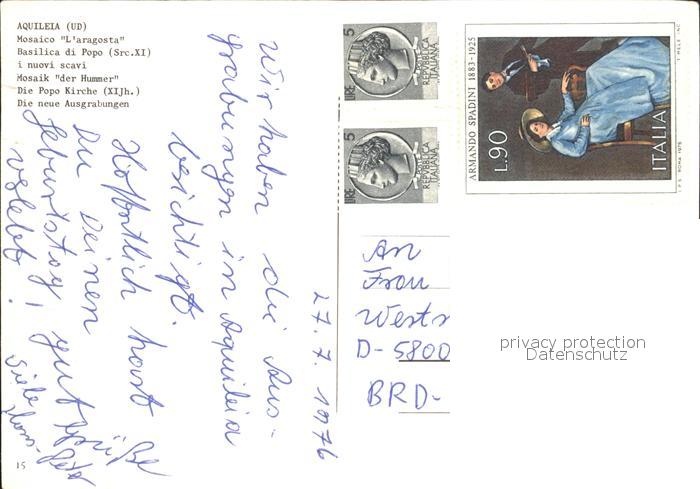 AQUILEIA (UD)
Mosaico "L'aragosta"
Basilica di Popo (Src.XI)
i nuovi scavi
Mosaik "der Hummer"
Die Popo Kirche (XIJh.)
Die neue Ausgrabungen
27. 7. 1976
Wir haben die Aus-
grabungen in Aquileia
besichtigt.
Hoffentlich hast
Du Deinen
Geburtstag gut
verlebt!
Viele Grüße
Hans-Peter
LIRE 5
REPVBBLICA
ITALIANA
LIRE 5
REPVBBLICA
ITALIANA
ARMANDO SPADINI 1883-1925
L.90
ITALIA
T. MELE INC.
I.P.S. ROMA 1975
An
Frau
D-5800
BRD-
privacy protection
Datenschutz
15